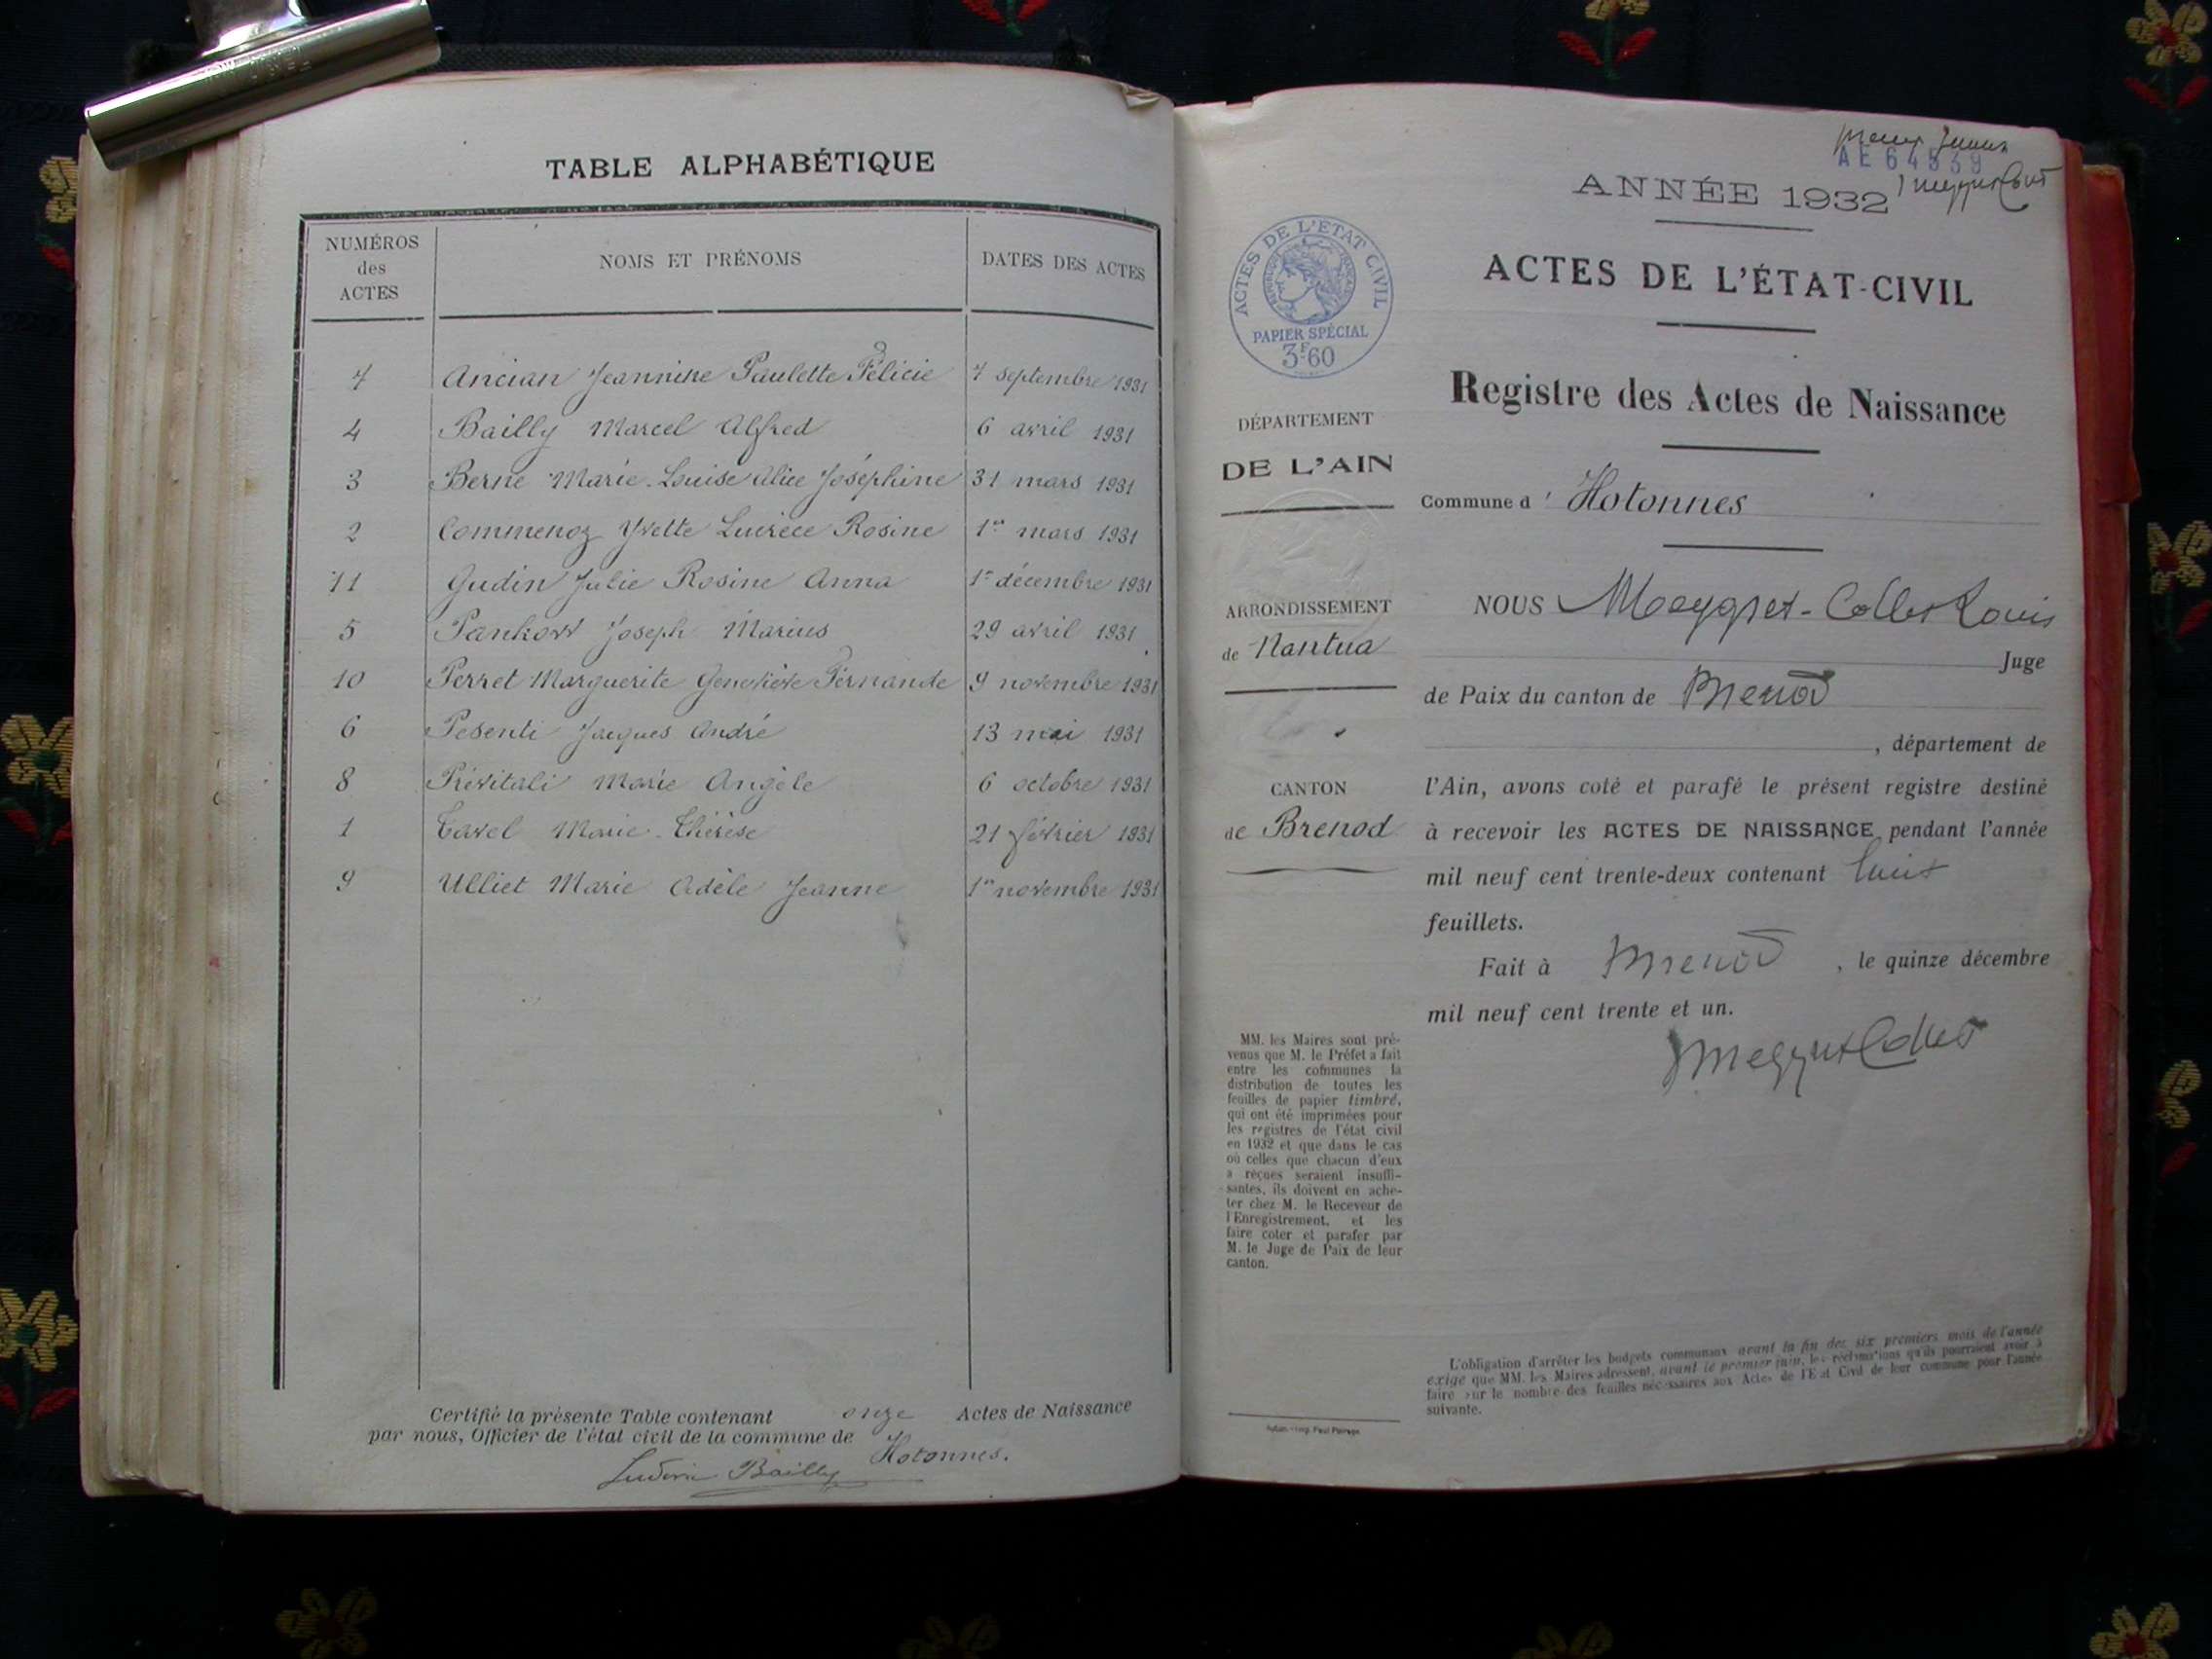 TABLE ALPHABÉTIQUE
NUMÉROS des ACTES
NOMS ET PRÉNOMS
DATES DES ACTES
7 Ancian Jeannine Paulette Félicie 7 septembre 1931
4 Bailly Marcel Alfred 6 avril 1931
3 Berne Marie-Louise Alice Joséphine 31 mars 1931
2 Commenoz Yvette Lucrèce Rosine 1er mars 1931
11 Gudin Julie Rosine Anna 1er décembre 1931
5 Pankow Joseph Marius 29 avril 1931
10 Perret Marguerite Geneviève Fernande 9 novembre 1931
6 Pesenti Jacques André 13 mai 1931
8 Prévitali Marie Angèle 6 octobre 1931
1 Tavel Marie-Thérèse 21 février 1931
9 Ulliet Marie Adèle Jeanne 1er novembre 1931
Certifié la présente Table contenant onze Actes de Naissance
par nous, Officier de l'état civil de la commune de Hotonnes.
Ludovic Bailly
AE 64539
ANNÉE 1932
ACTES DE L'ÉTAT CIVIL
RÉPUBLIQUE FRANÇAISE
PAPIER SPÉCIAL
3F60
ACTES DE L'ÉTAT-CIVIL
Registre des Actes de Naissance
DÉPARTEMENT
DE L'AIN
ARRONDISSEMENT
de Nantua
CANTON
de Brenod
Commune d' Hotonnes
NOUS Meygret-Collet Louis
Juge
de Paix du canton de Brenod
, département de
l'Ain, avons coté et parafé le présent registre destiné
à recevoir les ACTES DE NAISSANCE pendant l'année
mil neuf cent trente-deux contenant huit
feuillets.
Fait à Brenod, le quinze décembre
mil neuf cent trente et un.
Meygret Collet
MM. les Maires sont pré-
venus que M. le Préfet a fait
entre les communes la
distribution de toutes les
feuilles de papier timbré,
qui ont été imprimées pour
les registres de l'état civil
en 1932 et que dans le cas
où celles que chacun d'eux
a reçues seraient insuffi-
santes, ils doivent en ache-
ter chez M. le Receveur de
l'Enregistrement, et les
faire coter et parafer par
M. le Juge de Paix de leur
canton.
L'obligation d'arrêter les budgets communaux avant la fin des six premiers mois de l'année
exige que MM. les Maires adressent, avant le premier juin, les réclamations qu'ils pourraient avoir à
faire sur le nombre des feuilles nécessaires aux Actes de l'Etat Civil de leur commune pour l'année
suivante.